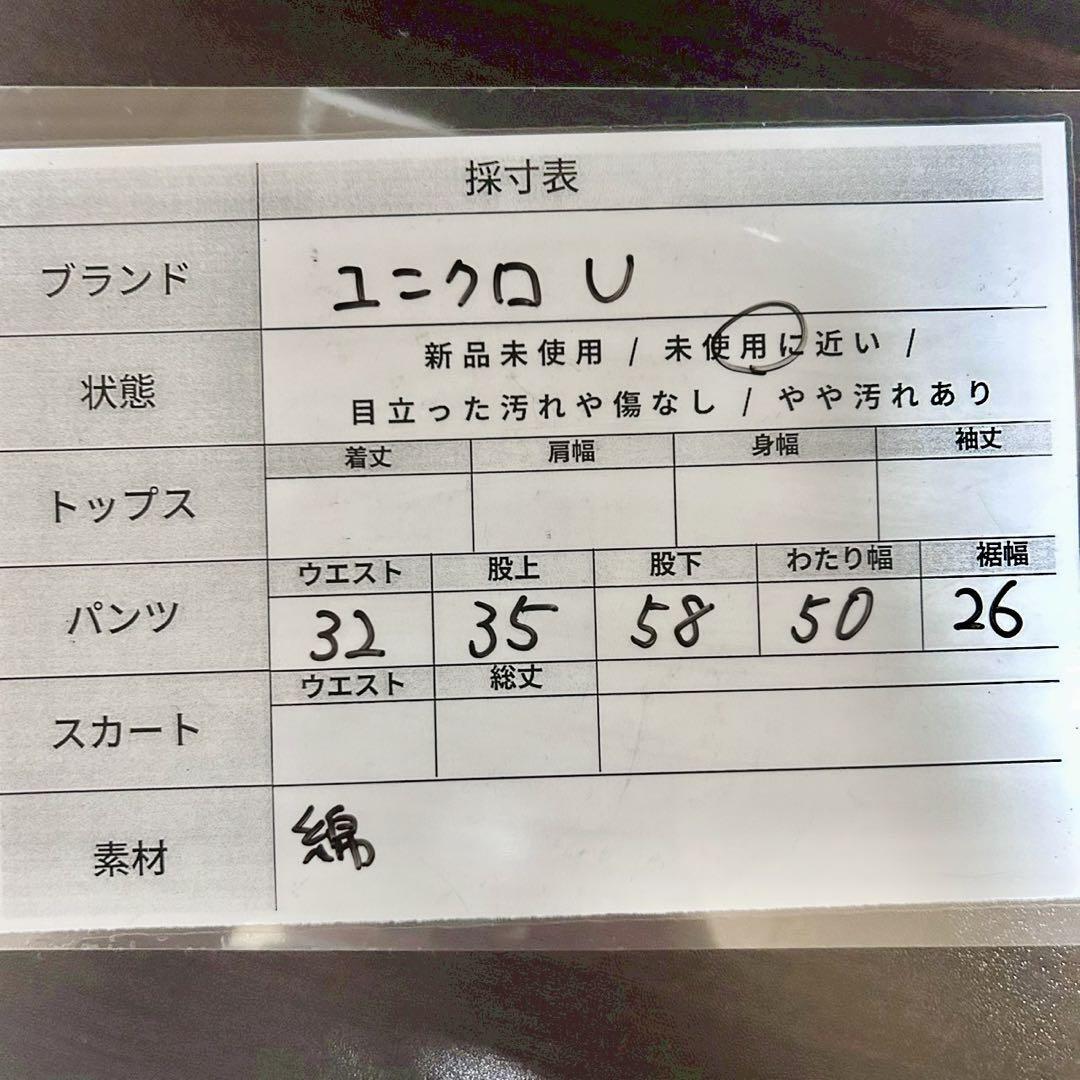 採寸表
ブランド ユニクロ U
状態 新品未使用 / 未使用に近い /
目立った汚れや傷なし / やや汚れあり
トップス 着丈 肩幅 身幅 袖丈
パンツ ウエスト 股上 股下 わたり幅 裾幅
32 35 58 50 26
スカート ウエスト 総丈
素材 綿